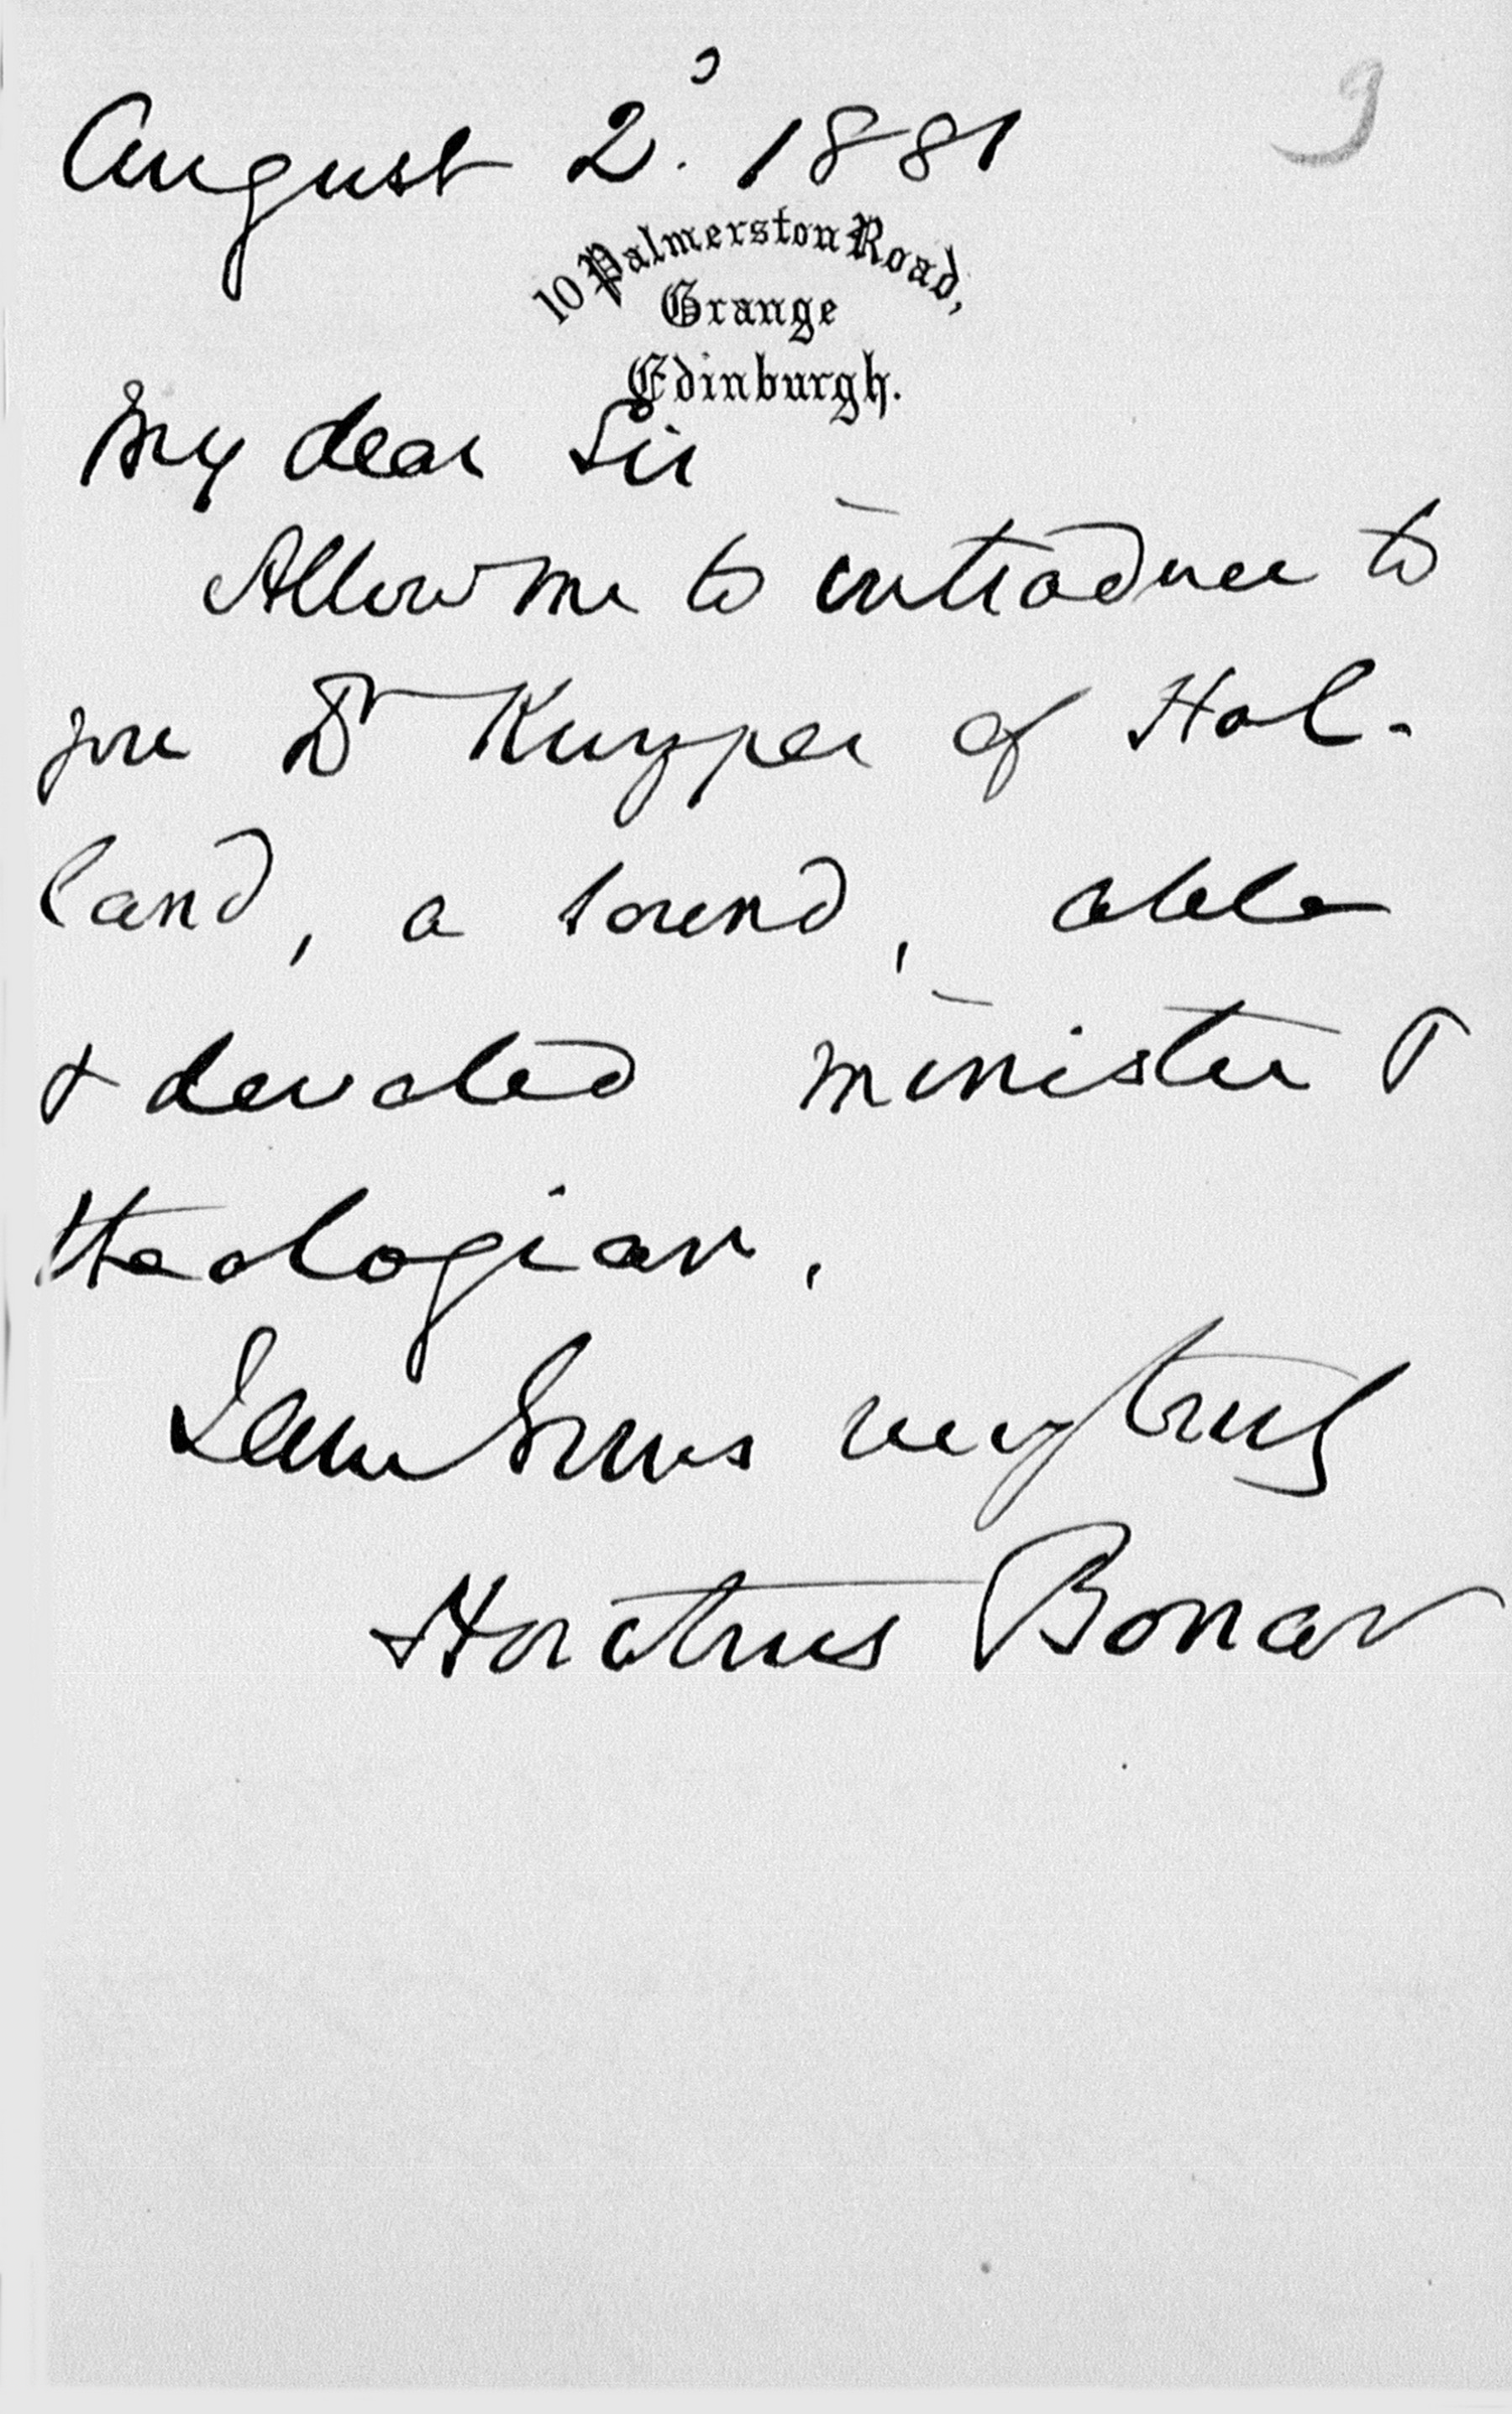 August 2. 1881
9
10 Palmerston Road,
Grange
Edinburgh.
My dear Sir
Allow me to introduce to
you Dr Kuyper of Hol-
land, a sound, able
& devoted minister &
theologian.
I am Yours very truly
Horatius Bonar